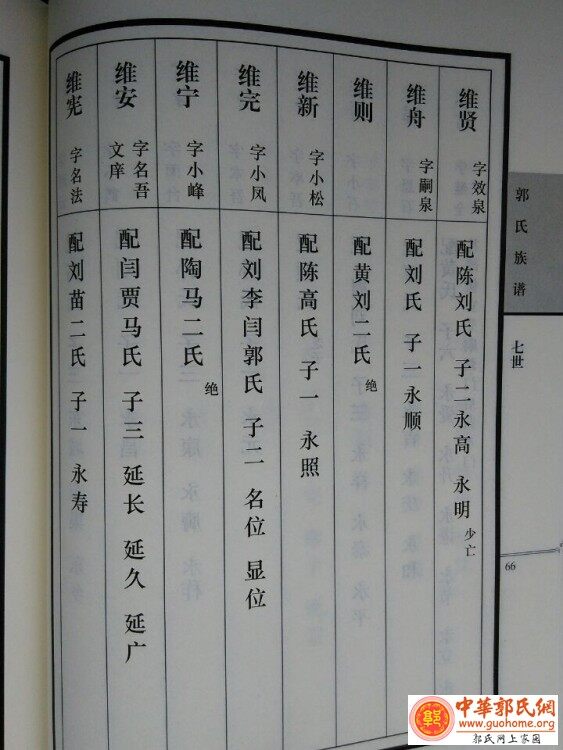 郭氏族谱
七世
66
维贤 字效泉 配陈刘氏 子二永高 永明 少亡
维舟 字嗣泉 配刘氏 子一永顺
维则 配黄刘二氏 绝
维新 字小松 配陈高氏 子一 永照
维完 字小凤 配刘李闫郭氏 子二 名位 显位
维宁 字小峰 配陶马二氏 绝
维安 字名吾 文庠 配闫贾马氏 子三 延长 延久 延广
维宪 字名法 配刘苗二氏 子一 永寿
郭
中華郭氏網
www.guohome.org
郭氏网上家园